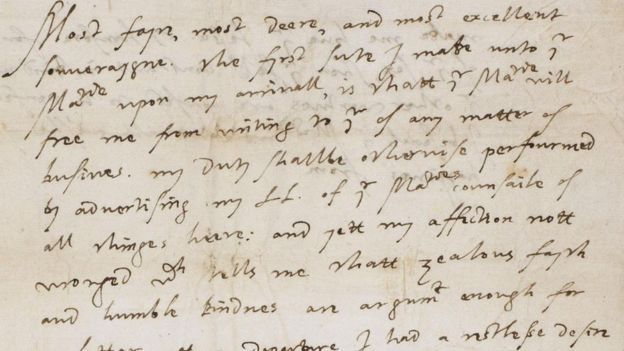 Most faire, most deere, and most excellent
soueraigne. the first sute I make unto yr
Matie upon my arriuall, is thatt yr Matie will
free me from writing to yr of any matter of
busines. my duty shalbe otherwise perfourmed
by advertising my LL. of yr Maties counsaile of
all thinges heere: and yett my affection nott
wronged wch tells me thatt zealous fayth
and humble kindnes are argumt enough for
letter att departure I had a restlesse desire